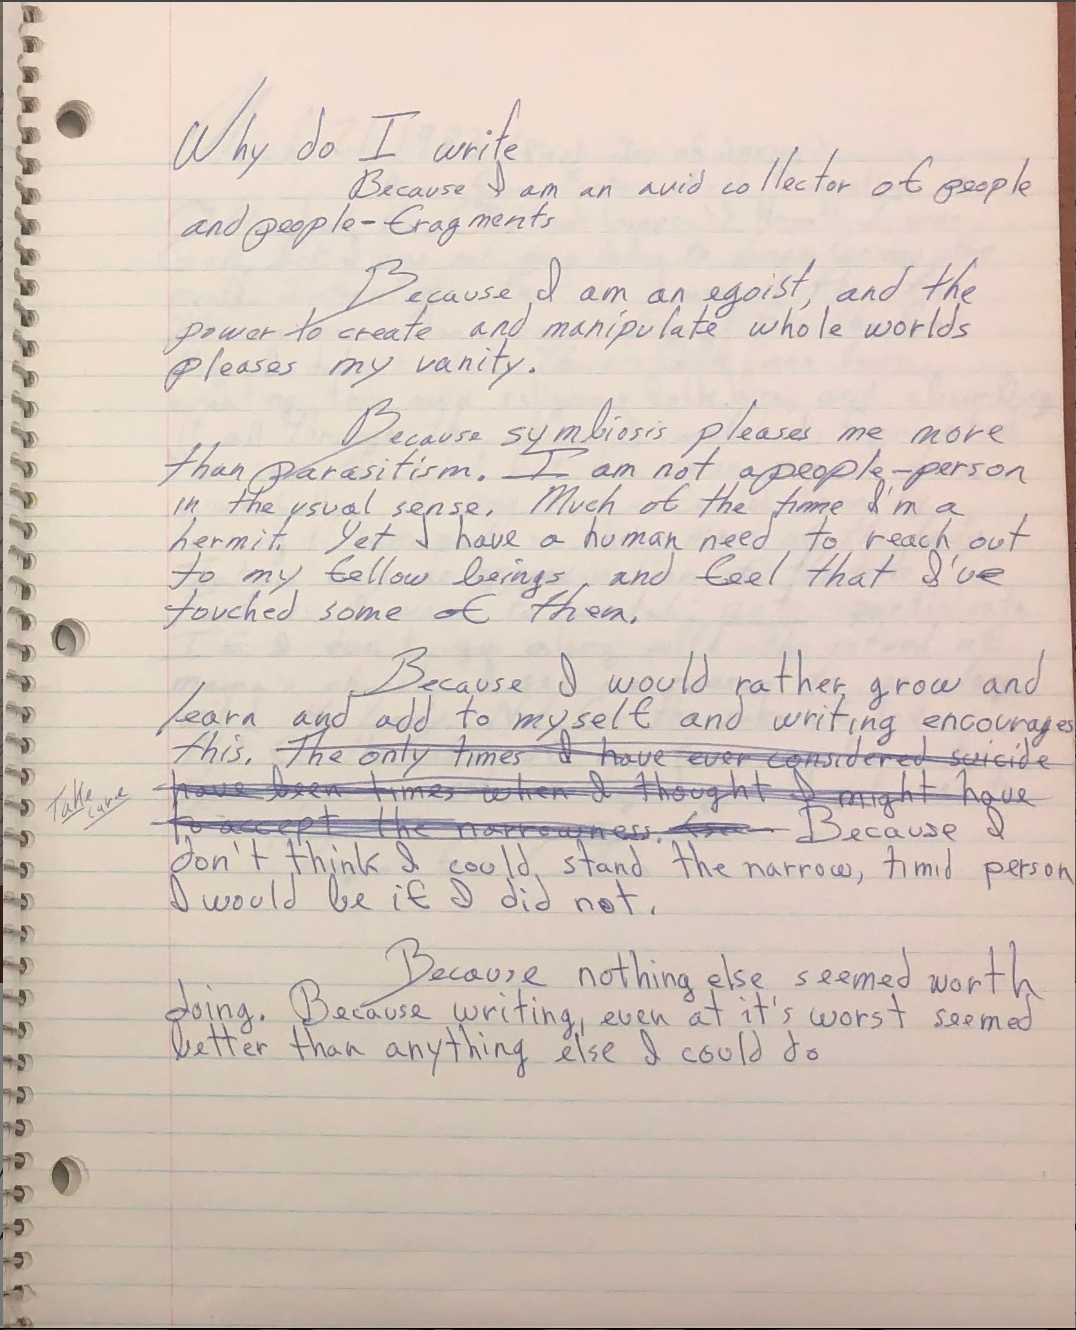 Why do I write
Because I am an avid collector of people
and people-fragments
Because I am an egoist, and the
power to create and manipulate whole worlds
pleases my vanity.
Because symbiosis pleases me more
than parasitism. I am not a people-person
in the usual sense. Much of the time I'm a
hermit. Yet I have a human need to reach out
to my fellow beings, and feel that I've
touched some of them.
Because I would rather grow and
learn and add to myself and writing encourages
this. The only times I have ever considered suicide
Take care
have been times when I thought I might have
to accept the narrowness. Because I
don't think I could stand the narrow, timid person
I would be if I did not.
Because nothing else seemed worth
doing. Because writing, even at it's worst seemed
better than anything else I could do